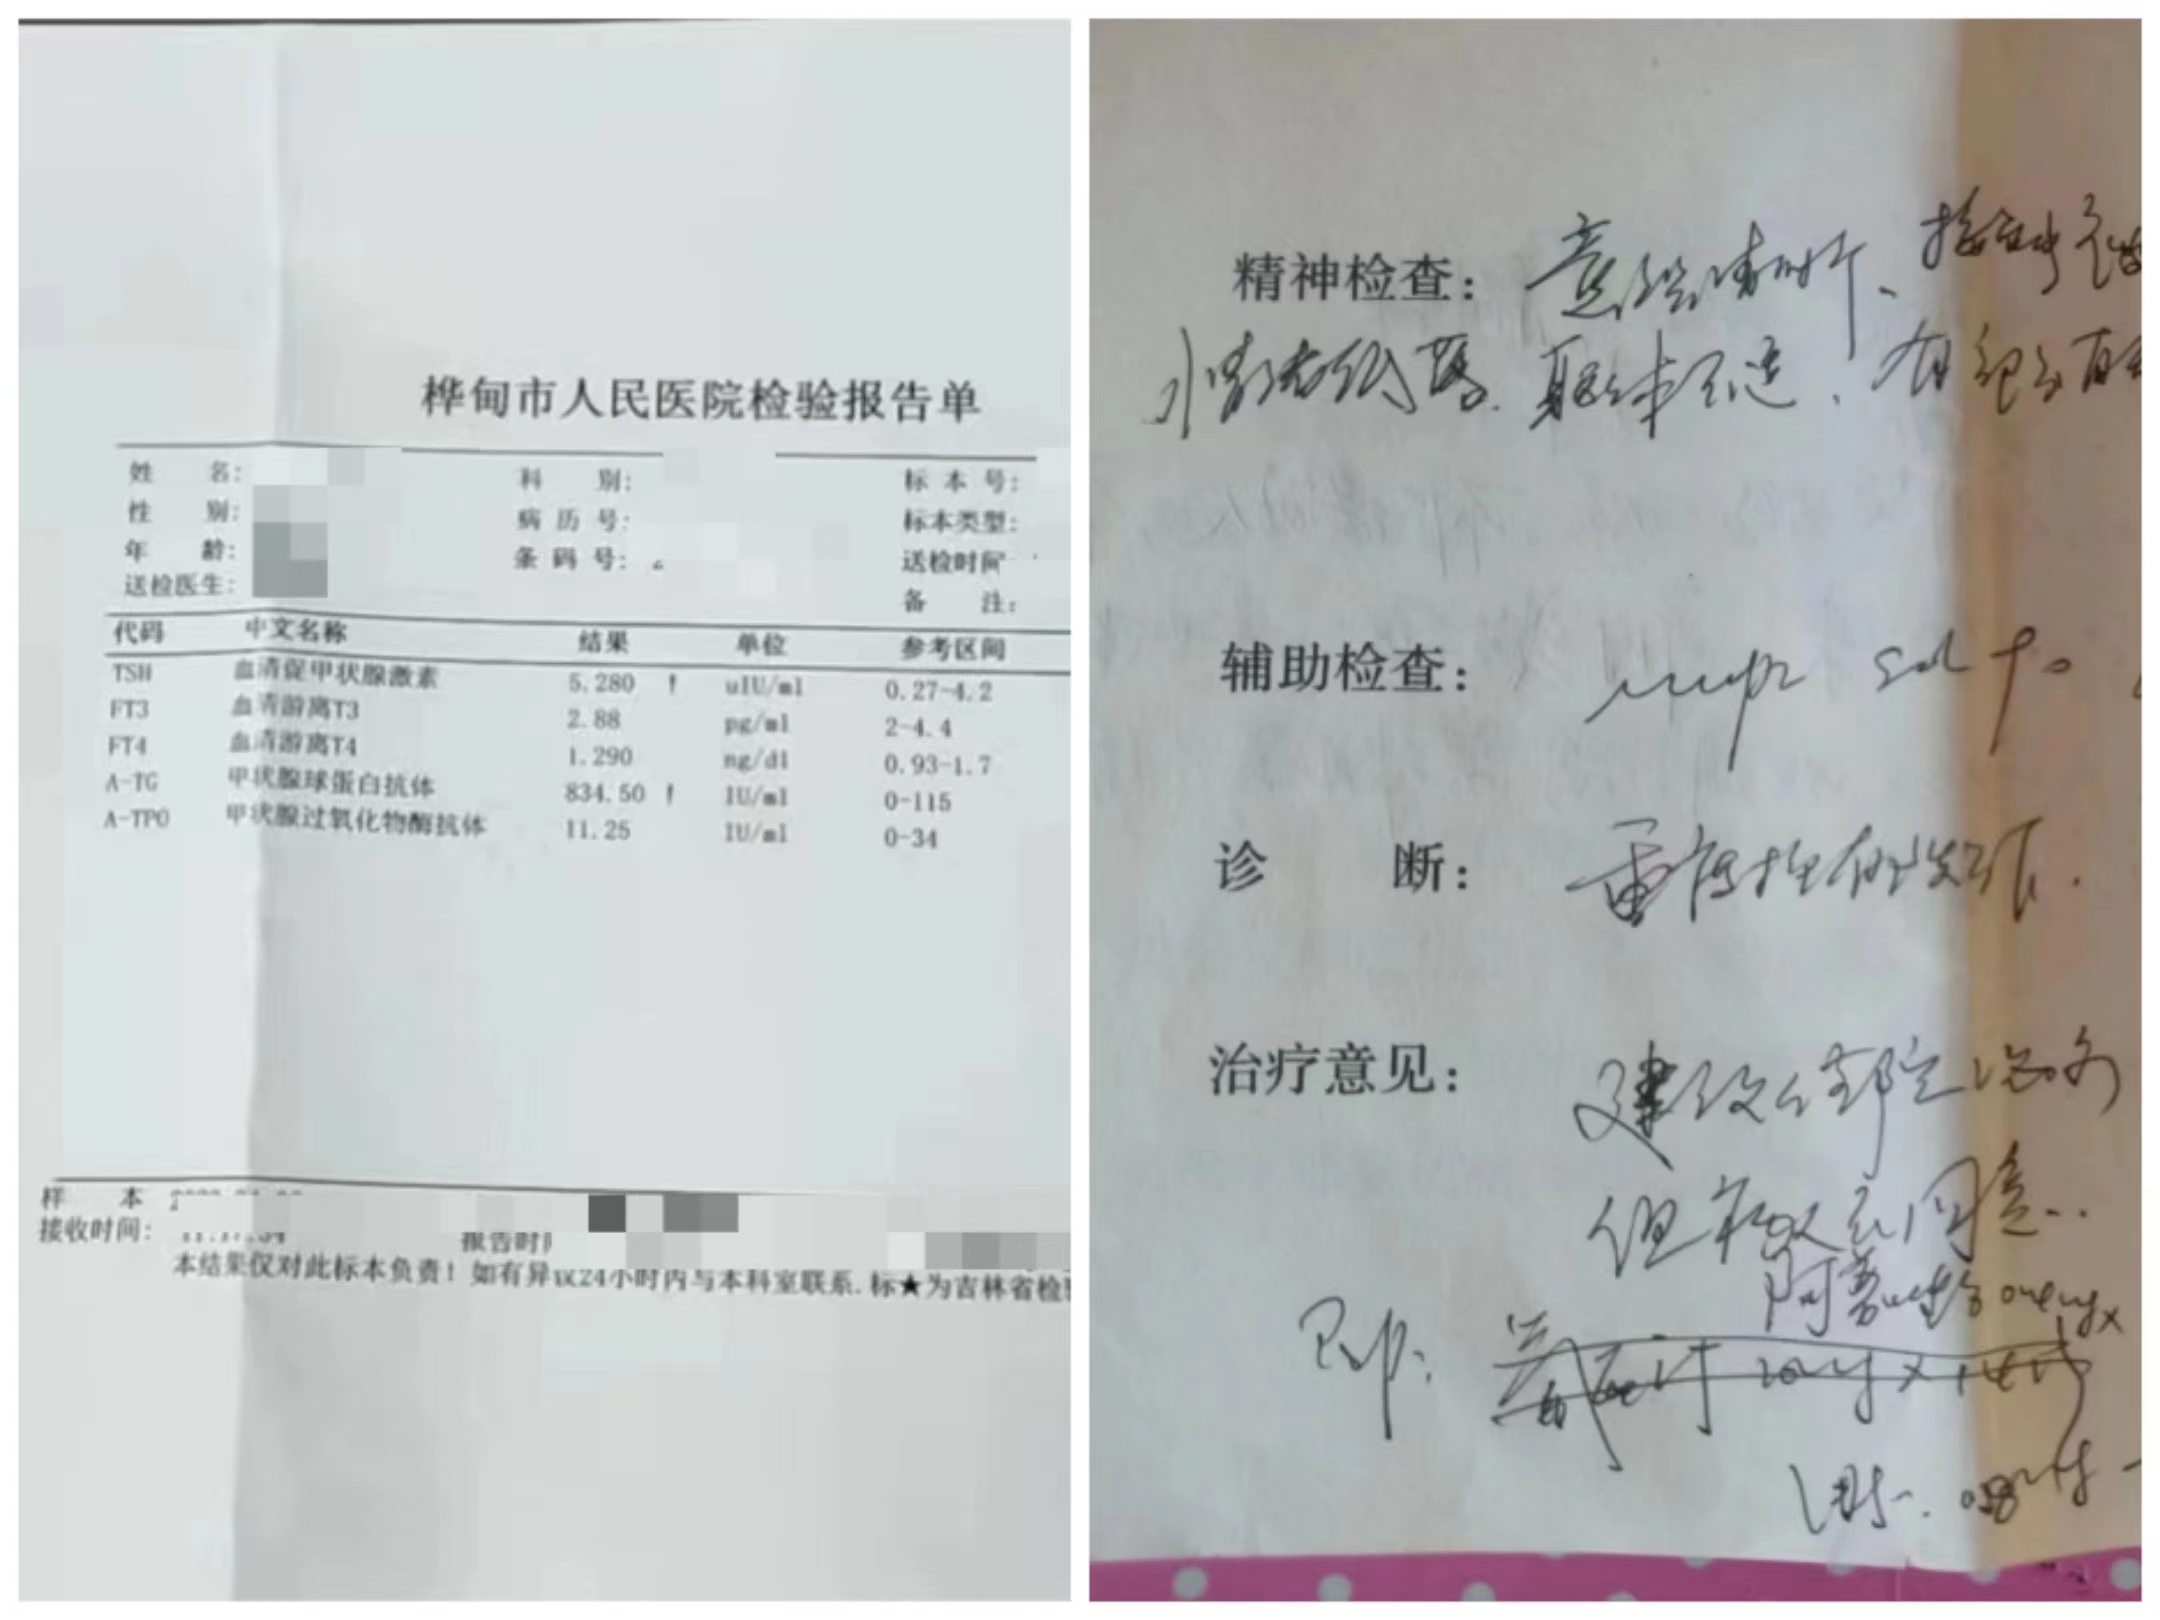 桦甸市人民医院检验报告单
姓 名: 科 别: 标 本 号:
性 别: 病 历 号: 标本类型:
年 龄: 条 码 号: 送检时间
送检医生: 备 注:
代码 中文名称 结果 单位 参考区间
TSH 血清促甲状腺激素 5.280 ↑ uIU/ml 0.27-4.2
FT3 血清游离T3 2.88 pg/ml 2-4.4
FT4 血清游离T4 1.290 ng/dl 0.93-1.7
A-TG 甲状腺球蛋白抗体 834.50 ↑ IU/ml 0-115
A-TPO 甲状腺过氧化物酶抗体 11.25 IU/ml 0-34
样 本
接收时间: 报告时
本结果仅对此标本负责! 如有异议24小时内与本科室联系.标★为吉林省检
精神检查: 意识清晰、接触
情绪低落. 躯体不适、有
辅助检查:
诊 断: 重度抑郁发作.
治疗意见: 建议住院治疗
但 不同意..
阿普唑仑